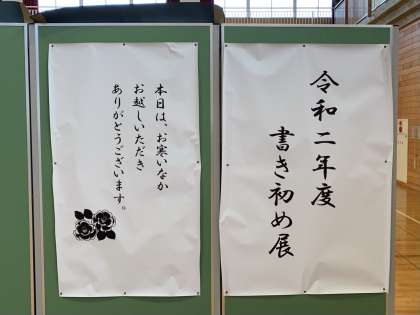 令和二年度
書き初め展
本日は、お寒いなか
お越しいただき
ありがとうございます。